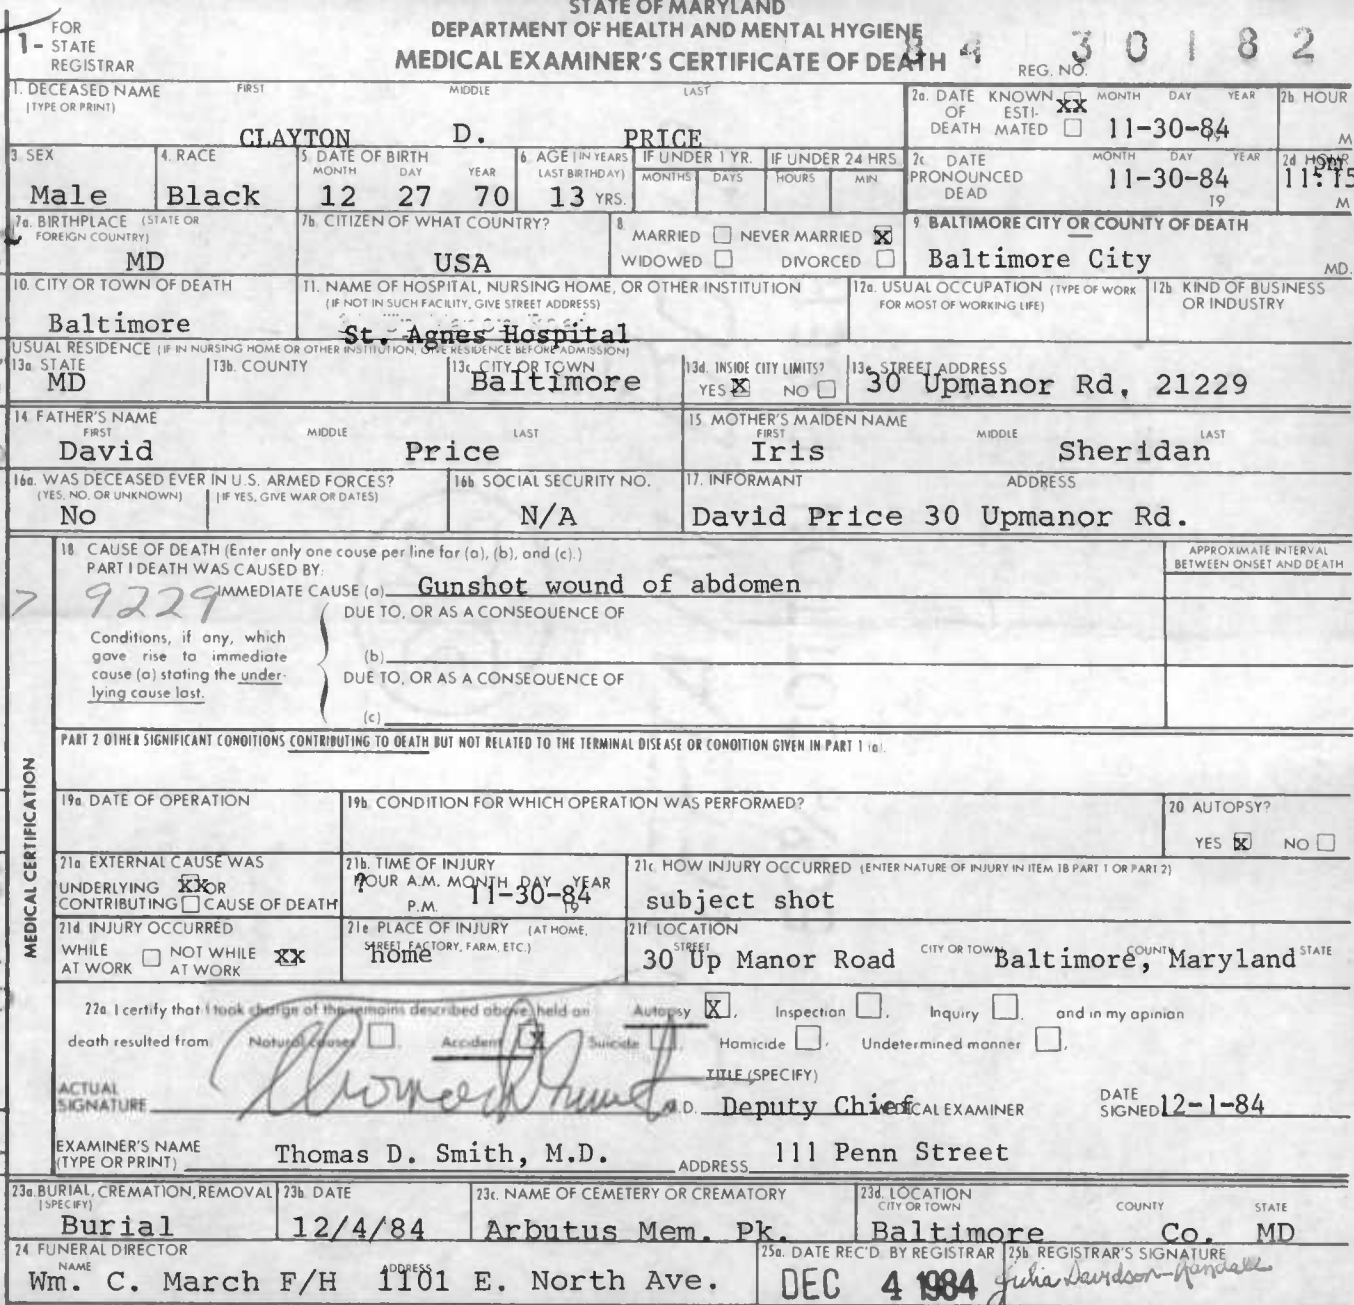 STATE OF MARYLAND
DEPARTMENT OF HEALTH AND MENTAL HYGIENE
MEDICAL EXAMINER'S CERTIFICATE OF DEATH
1- FOR STATE REGISTRAR
REG. NO. 84 30182
1. DECEASED NAME (TYPE OR PRINT) FIRST MIDDLE LAST
CLAYTON D. PRICE
2a. DATE OF DEATH KNOWN XX ESTIMATED ☐ MONTH DAY YEAR 11-30-84 19
2b. HOUR M
3. SEX Male
4. RACE Black
5. DATE OF BIRTH MONTH DAY YEAR 12 27 70
6. AGE (IN YEARS LAST BIRTHDAY) 13 YRS.
IF UNDER 1 YR. MONTHS DAYS
IF UNDER 24 HRS HOURS MIN
2c. DATE PRONOUNCED DEAD MONTH DAY YEAR 11-30-84 19
2d HOUR 11:15 M
7a. BIRTHPLACE (STATE OR FOREIGN COUNTRY) MD
7b. CITIZEN OF WHAT COUNTRY? USA
8. MARRIED ☐ NEVER MARRIED X WIDOWED ☐ DIVORCED ☐
9. BALTIMORE CITY OR COUNTY OF DEATH Baltimore City MD.
10. CITY OR TOWN OF DEATH Baltimore
11. NAME OF HOSPITAL, NURSING HOME, OR OTHER INSTITUTION (IF NOT IN SUCH FACILITY, GIVE STREET ADDRESS)
St. Agnes Hospital
12a. USUAL OCCUPATION (TYPE OF WORK FOR MOST OF WORKING LIFE)
12b. KIND OF BUSINESS OR INDUSTRY
USUAL RESIDENCE (IF IN NURSING HOME OR OTHER INSTITUTION, GIVE RESIDENCE BEFORE ADMISSION)
13a. STATE MD
13b. COUNTY
13c. CITY OR TOWN Baltimore
13d. INSIDE CITY LIMITS? YES X NO ☐
13e. STREET ADDRESS 30 Upmanor Rd, 21229
14. FATHER'S NAME FIRST MIDDLE LAST
David Price
15. MOTHER'S MAIDEN NAME FIRST MIDDLE LAST
Iris Sheridan
16a. WAS DECEASED EVER IN U.S. ARMED FORCES? (YES, NO, OR UNKNOWN) (IF YES, GIVE WAR OR DATES)
No
16b. SOCIAL SECURITY NO. N/A
17. INFORMANT ADDRESS
David Price 30 Upmanor Rd.
MEDICAL CERTIFICATION
18 CAUSE OF DEATH (Enter only one cause per line for (a), (b), and (c).)
APPROXIMATE INTERVAL BETWEEN ONSET AND DEATH
PART I DEATH WAS CAUSED BY:
> 9229 IMMEDIATE CAUSE (a) Gunshot wound of abdomen
DUE TO, OR AS A CONSEQUENCE OF
Conditions, if any, which gave rise to immediate cause (a) stating the underlying cause last.
(b)
DUE TO, OR AS A CONSEQUENCE OF
(c)
PART 2 OTHER SIGNIFICANT CONDITIONS CONTRIBUTING TO DEATH BUT NOT RELATED TO THE TERMINAL DISEASE OR CONDITION GIVEN IN PART 1 (a).
19a. DATE OF OPERATION
19b. CONDITION FOR WHICH OPERATION WAS PERFORMED?
20 AUTOPSY? YES X NO ☐
21a. EXTERNAL CAUSE WAS UNDERLYING XX OR CONTRIBUTING ☐ CAUSE OF DEATH
21b. TIME OF INJURY HOUR A.M. P.M. MONTH DAY YEAR ? 11-30-84 19
21c. HOW INJURY OCCURRED (ENTER NATURE OF INJURY IN ITEM 18 PART 1 OR PART 2)
subject shot
21d. INJURY OCCURRED WHILE AT WORK ☐ NOT WHILE AT WORK XX
21e. PLACE OF INJURY (AT HOME, STREET, FACTORY, FARM, ETC.) home
21f. LOCATION STREET CITY OR TOWN COUNTY STATE
30 Up Manor Road Baltimore, Maryland
22a. I certify that I took charge of the remains described above, held an Autopsy X, Inspection ☐, Inquiry ☐, and in my opinion
death resulted from Natural causes ☐, Accident X, Suicide ☐, Homicide ☐, Undetermined manner ☐.
ACTUAL SIGNATURE M.D.
TITLE (SPECIFY) Deputy Chief MEDICAL EXAMINER
DATE SIGNED 12-1-84
EXAMINER'S NAME (TYPE OR PRINT) Thomas D. Smith, M.D.
ADDRESS 111 Penn Street
23a. BURIAL, CREMATION, REMOVAL (SPECIFY) Burial
23b. DATE 12/4/84
23c. NAME OF CEMETERY OR CREMATORY Arbutus Mem. Pk.
23d. LOCATION CITY OR TOWN COUNTY STATE
Baltimore Co. MD
24 FUNERAL DIRECTOR NAME ADDRESS
Wm. C. March F/H 1101 E. North Ave.
25a. DATE REC'D. BY REGISTRAR DEC 4 1984
25b. REGISTRAR'S SIGNATURE Julia Davidson-Randall